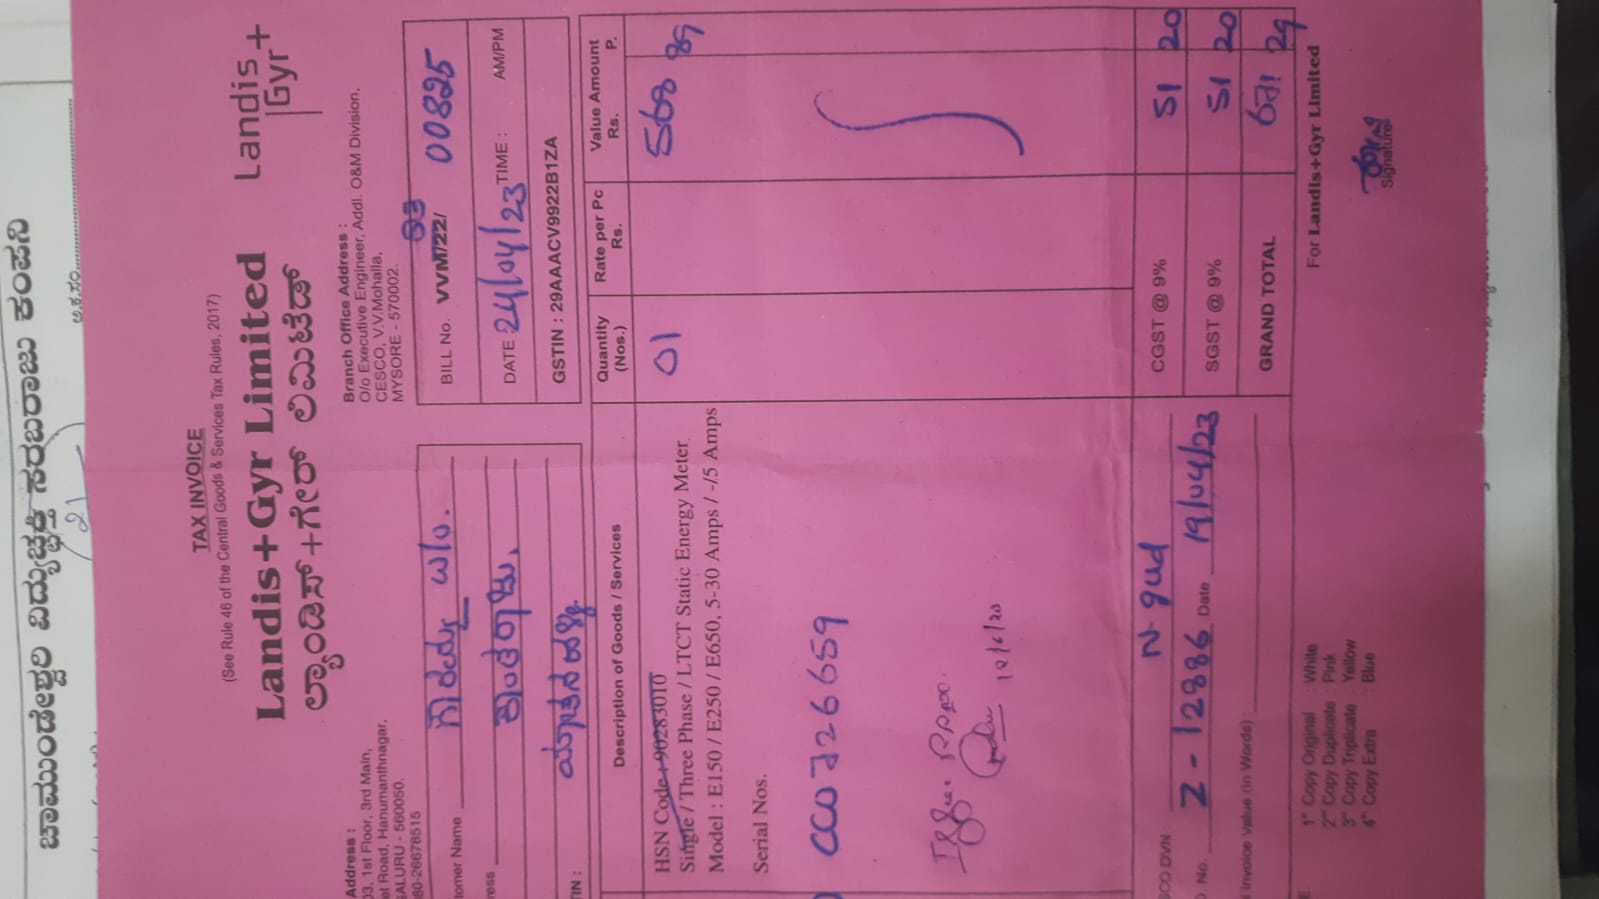 ಚಾಮುಂಡೇಶ್ವರಿ ವಿದ್ಯುಚ್ಛಕ್ತಿ ಸರಬರಾಜು ಕಂಪನಿ
TAX INVOICE
(See Rule 46 of the Central Goods & Services Tax Rules, 2017)
Landis+Gyr Limited
Landis+
Gyr+
ಲ್ಯಾಂಡಿಸ್+ಗೇರ್ ಲಿಮಿಟೆಡ್
Address :
03, 1st Floor, 3rd Main,
at Road, Hanumanthnagar,
GALURU - 560050.
080-26678515
Branch Office Address :
O/o Executive Engineer, Addl. O&M Division,
CESCO, V.V.Mohalla,
MYSORE - 570002.
tomer Name
ress
TIN :
BILL No. VVM/22/ 00825
DATE 24/04/23 TIME : AM/PM
GSTIN : 29AAACV9922B1ZA
Description of Goods / Services
Quantity (Nos.)
Rate per Pc Rs.
Value Amount Rs. P.
HSN Code : 90283010
Single / Three Phase / LTCT Static Energy Meter
Model : E150 / E250 / E650, 5-30 Amps / -/5 Amps
01
568 89
Serial Nos.
SCO DVN N-gud
CGST @ 9% 51 20
. No. Z-12886 Date 19/04/23
SGST @ 9% 51 20
l Invoice Value (In Words) :
GRAND TOTAL 671 29
1st Copy Original : White
2nd Copy Duplicate : Pink
3rd Copy Triplicate : Yellow
4th Copy Extra : Blue
For Landis+Gyr Limited
Signature